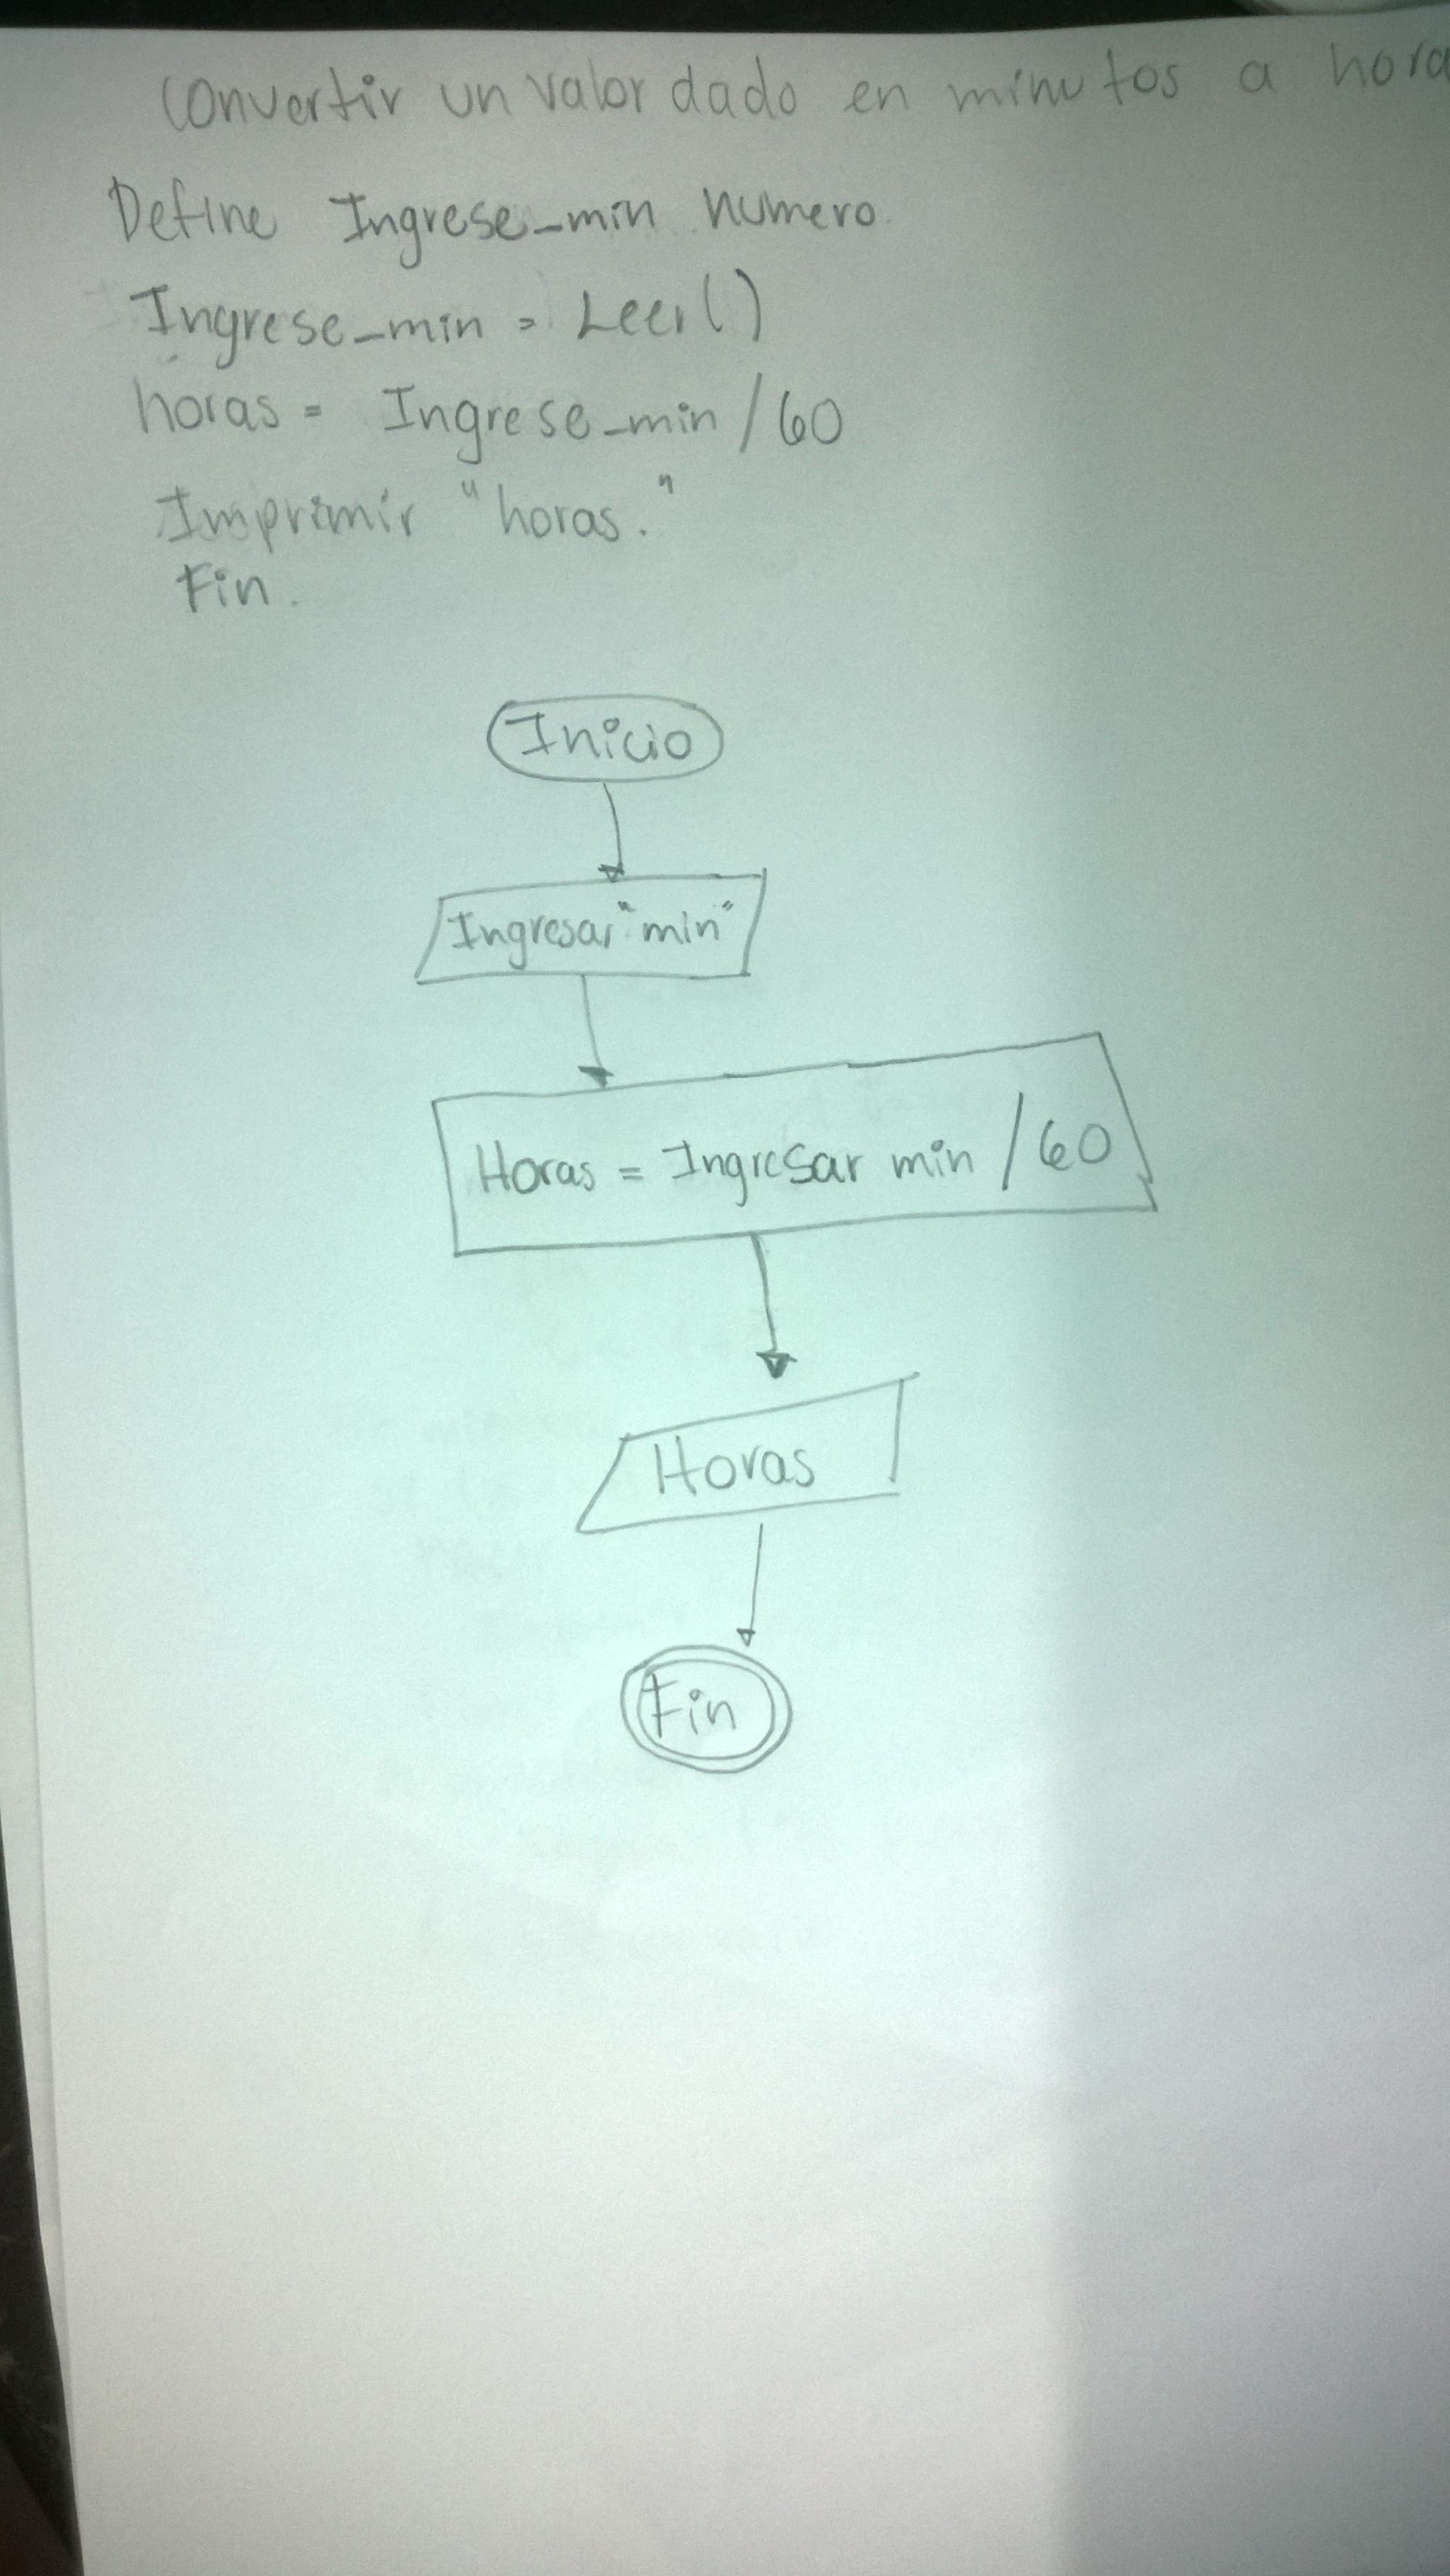 Convertir un valor dado en minutos a hora
Define Ingrese_min numero.
Ingrese_min = Leer()
horas = Ingrese_min / 60
Imprimir "horas."
Fin.
Inicio
Ingresar "min"
Horas = Ingresar min / 60
Horas
Fin